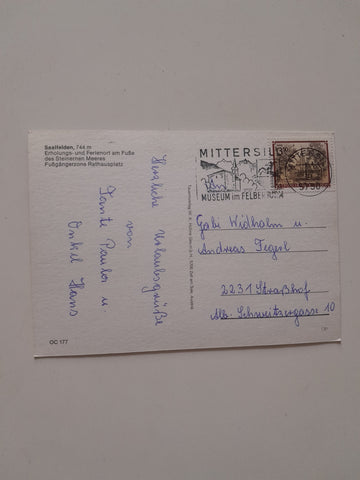 Saalfelden, 744 m
Erholungs- und Ferienort am Fuße
des Steinernen Meeres
Fußgängerzone Rathausplatz
Herzliche Urlaubsgrüße
von
Tante Paula u.
Onkel Hans
OC 177
MITTERSILL
MUSEUM im FELBERTURM
5730
Gabi Widhalm u.
Andreas Fegerl
2231 Straßhof
Alb. Schweitzergasse 10